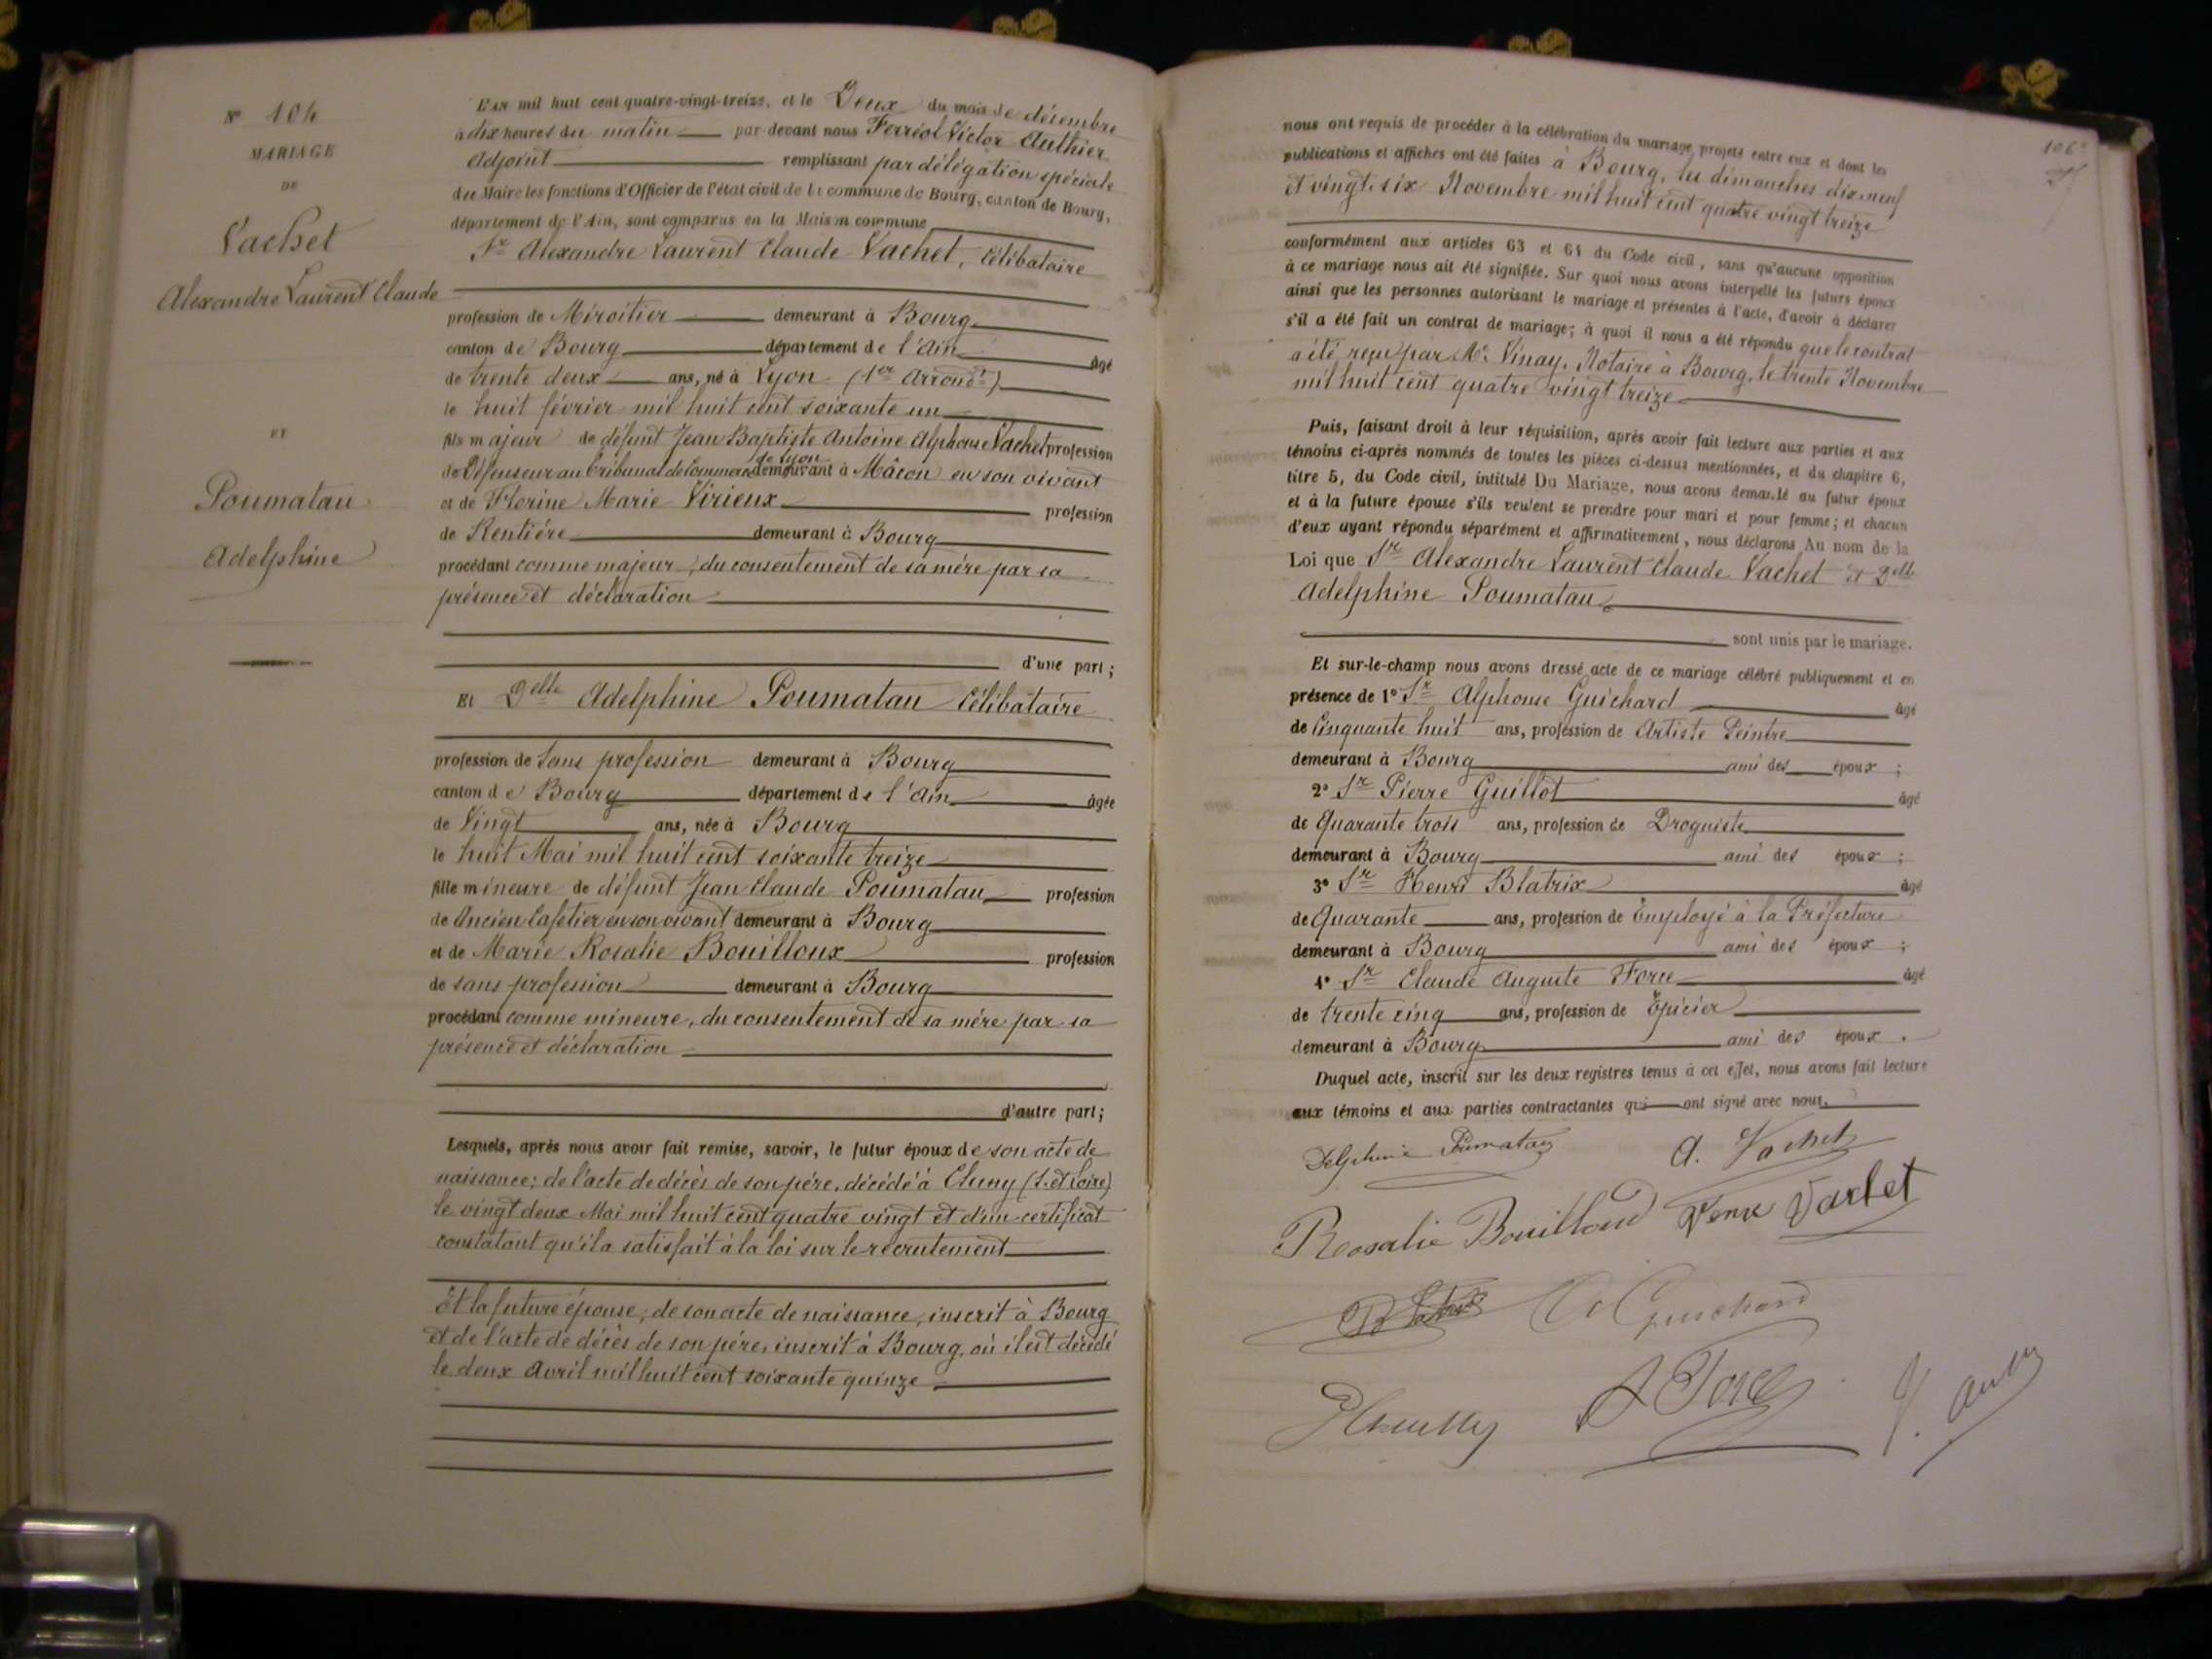 N° 104
MARIAGE
DE
Vachet
Alexandre Laurent Claude
ET
Poumatau
Adelphine
L'AN mil huit cent quatre-vingt-treize, et le Deux du mois de décembre
à dix heures du matin par devant nous Ferréol Victor Authier
Adjoint remplissant par délégation spéciale
du Maire les fonctions d'Officier de l'état civil de la commune de Bourg, canton de Bourg,
département de l'Ain, sont comparus en la Maison commune
Sr Alexandre Laurent Claude Vachet, célibataire
profession de Miroitier demeurant à Bourg
canton de Bourg département de l'Ain âgé
de trente deux ans, né à Lyon (1er Arrondt)
le huit février mil huit cent soixante un
fils majeur de défunt Jean Baptiste Antoine Alphonse Vachet profession
de Défenseur au Tribunal de Commerce de Lyon demeurant à Mâcon en son vivant
et de Florine Marie Virieux profession
de Rentière demeurant à Bourg
procédant comme majeur, du consentement de sa mère par sa
présence et déclaration
d'une part;
Et Delle Adelphine Poumatau célibataire
profession de Sans profession demeurant à Bourg
canton de Bourg département de l'Ain âgée
de Vingt ans, née à Bourg
le huit Mai mil huit cent soixante treize
fille mineure de défunt Jean Claude Poumatau profession
de Ancien Cafetier en son vivant demeurant à Bourg
et de Marie Rosalie Bouilloux profession
de sans profession demeurant à Bourg
procédant comme mineure, du consentement de sa mère par sa
présence et déclaration
d'autre part;
Lesquels, après nous avoir fait remise, savoir, le futur époux de son acte de
naissance; de l'acte de décès de son père, décédé à Cluny (S. et Loire)
le vingt deux Mai mil huit cent quatre vingt et d'un certificat
constatant qu'il a satisfait à la loi sur le recrutement
Et la future épouse, de son acte de naissance, inscrit à Bourg
et de l'acte de décès de son père, inscrit à Bourg, où il est décédé
le deux Avril mil huit cent soixante quinze
106
nous ont requis de procéder à la célébration du mariage projeté entre eux et dont les
publications et affiches ont été faites à Bourg, les dimanches dix neuf
et vingt six Novembre mil huit cent quatre vingt treize
conformément aux articles 63 et 64 du Code civil, sans qu'aucune opposition
à ce mariage nous ait été signifiée. Sur quoi nous avons interpellé les futurs époux
ainsi que les personnes autorisant le mariage et présentes à l'acte, d'avoir à déclarer
s'il a été fait un contrat de mariage; à quoi il nous a été répondu que le contrat
a été reçu par Me Vinay, Notaire à Bourg, le trente Novembre
mil huit cent quatre vingt treize
Puis, faisant droit à leur réquisition, après avoir fait lecture aux parties et aux
témoins ci-après nommés de toutes les pièces ci-dessus mentionnées, et du chapitre 6,
titre 5, du Code civil, intitulé Du Mariage, nous avons demandé au futur époux
et à la future épouse s'ils veulent se prendre pour mari et pour femme; et chacun
d'eux ayant répondu séparément et affirmativement, nous déclarons Au nom de la
Loi que Sr Alexandre Laurent Claude Vachet et Delle
Adelphine Poumatau
sont unis par le mariage.
Et sur-le-champ nous avons dressé acte de ce mariage célébré publiquement et en
présence de 1° Sr Alphonse Guichard âgé
de Cinquante huit ans, profession de Artiste Peintre
demeurant à Bourg ami des époux;
2° Sr Pierre Guillot âgé
de Quarante trois ans, profession de Droguiste
demeurant à Bourg ami des époux;
3° Sr Henri Blatrix âgé
de Quarante ans, profession de Employé à la Préfecture
demeurant à Bourg ami des époux;
4° Sr Claude Auguste Force âgé
de trente cinq ans, profession de Epicier
demeurant à Bourg ami des époux.
Duquel acte, inscrit sur les deux registres tenus à cet effet, nous avons fait lecture
aux témoins et aux parties contractantes qui ont signé avec nous.
Delphine Poumatau A. Vachet
Rosalie Bouilloud
Guichard
A Force